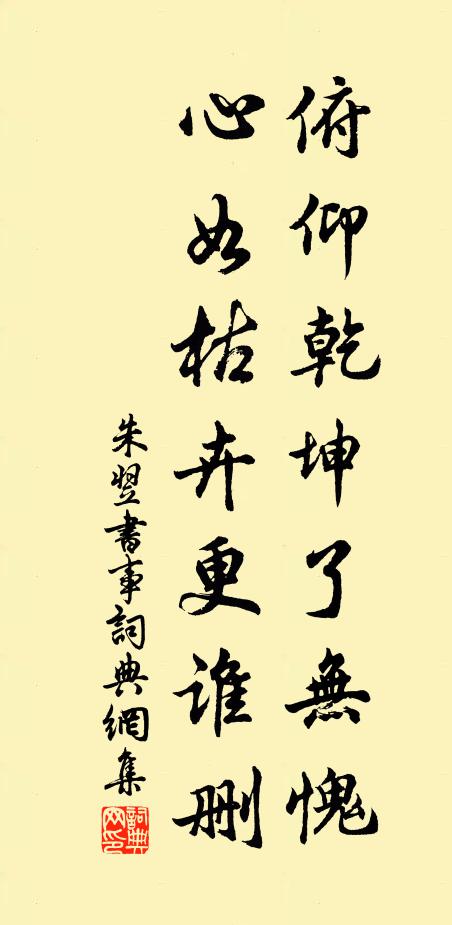 俯仰乾坤了無愧
心如枯卉更誰刪
朱翌書事詞典網集
詞典
网印